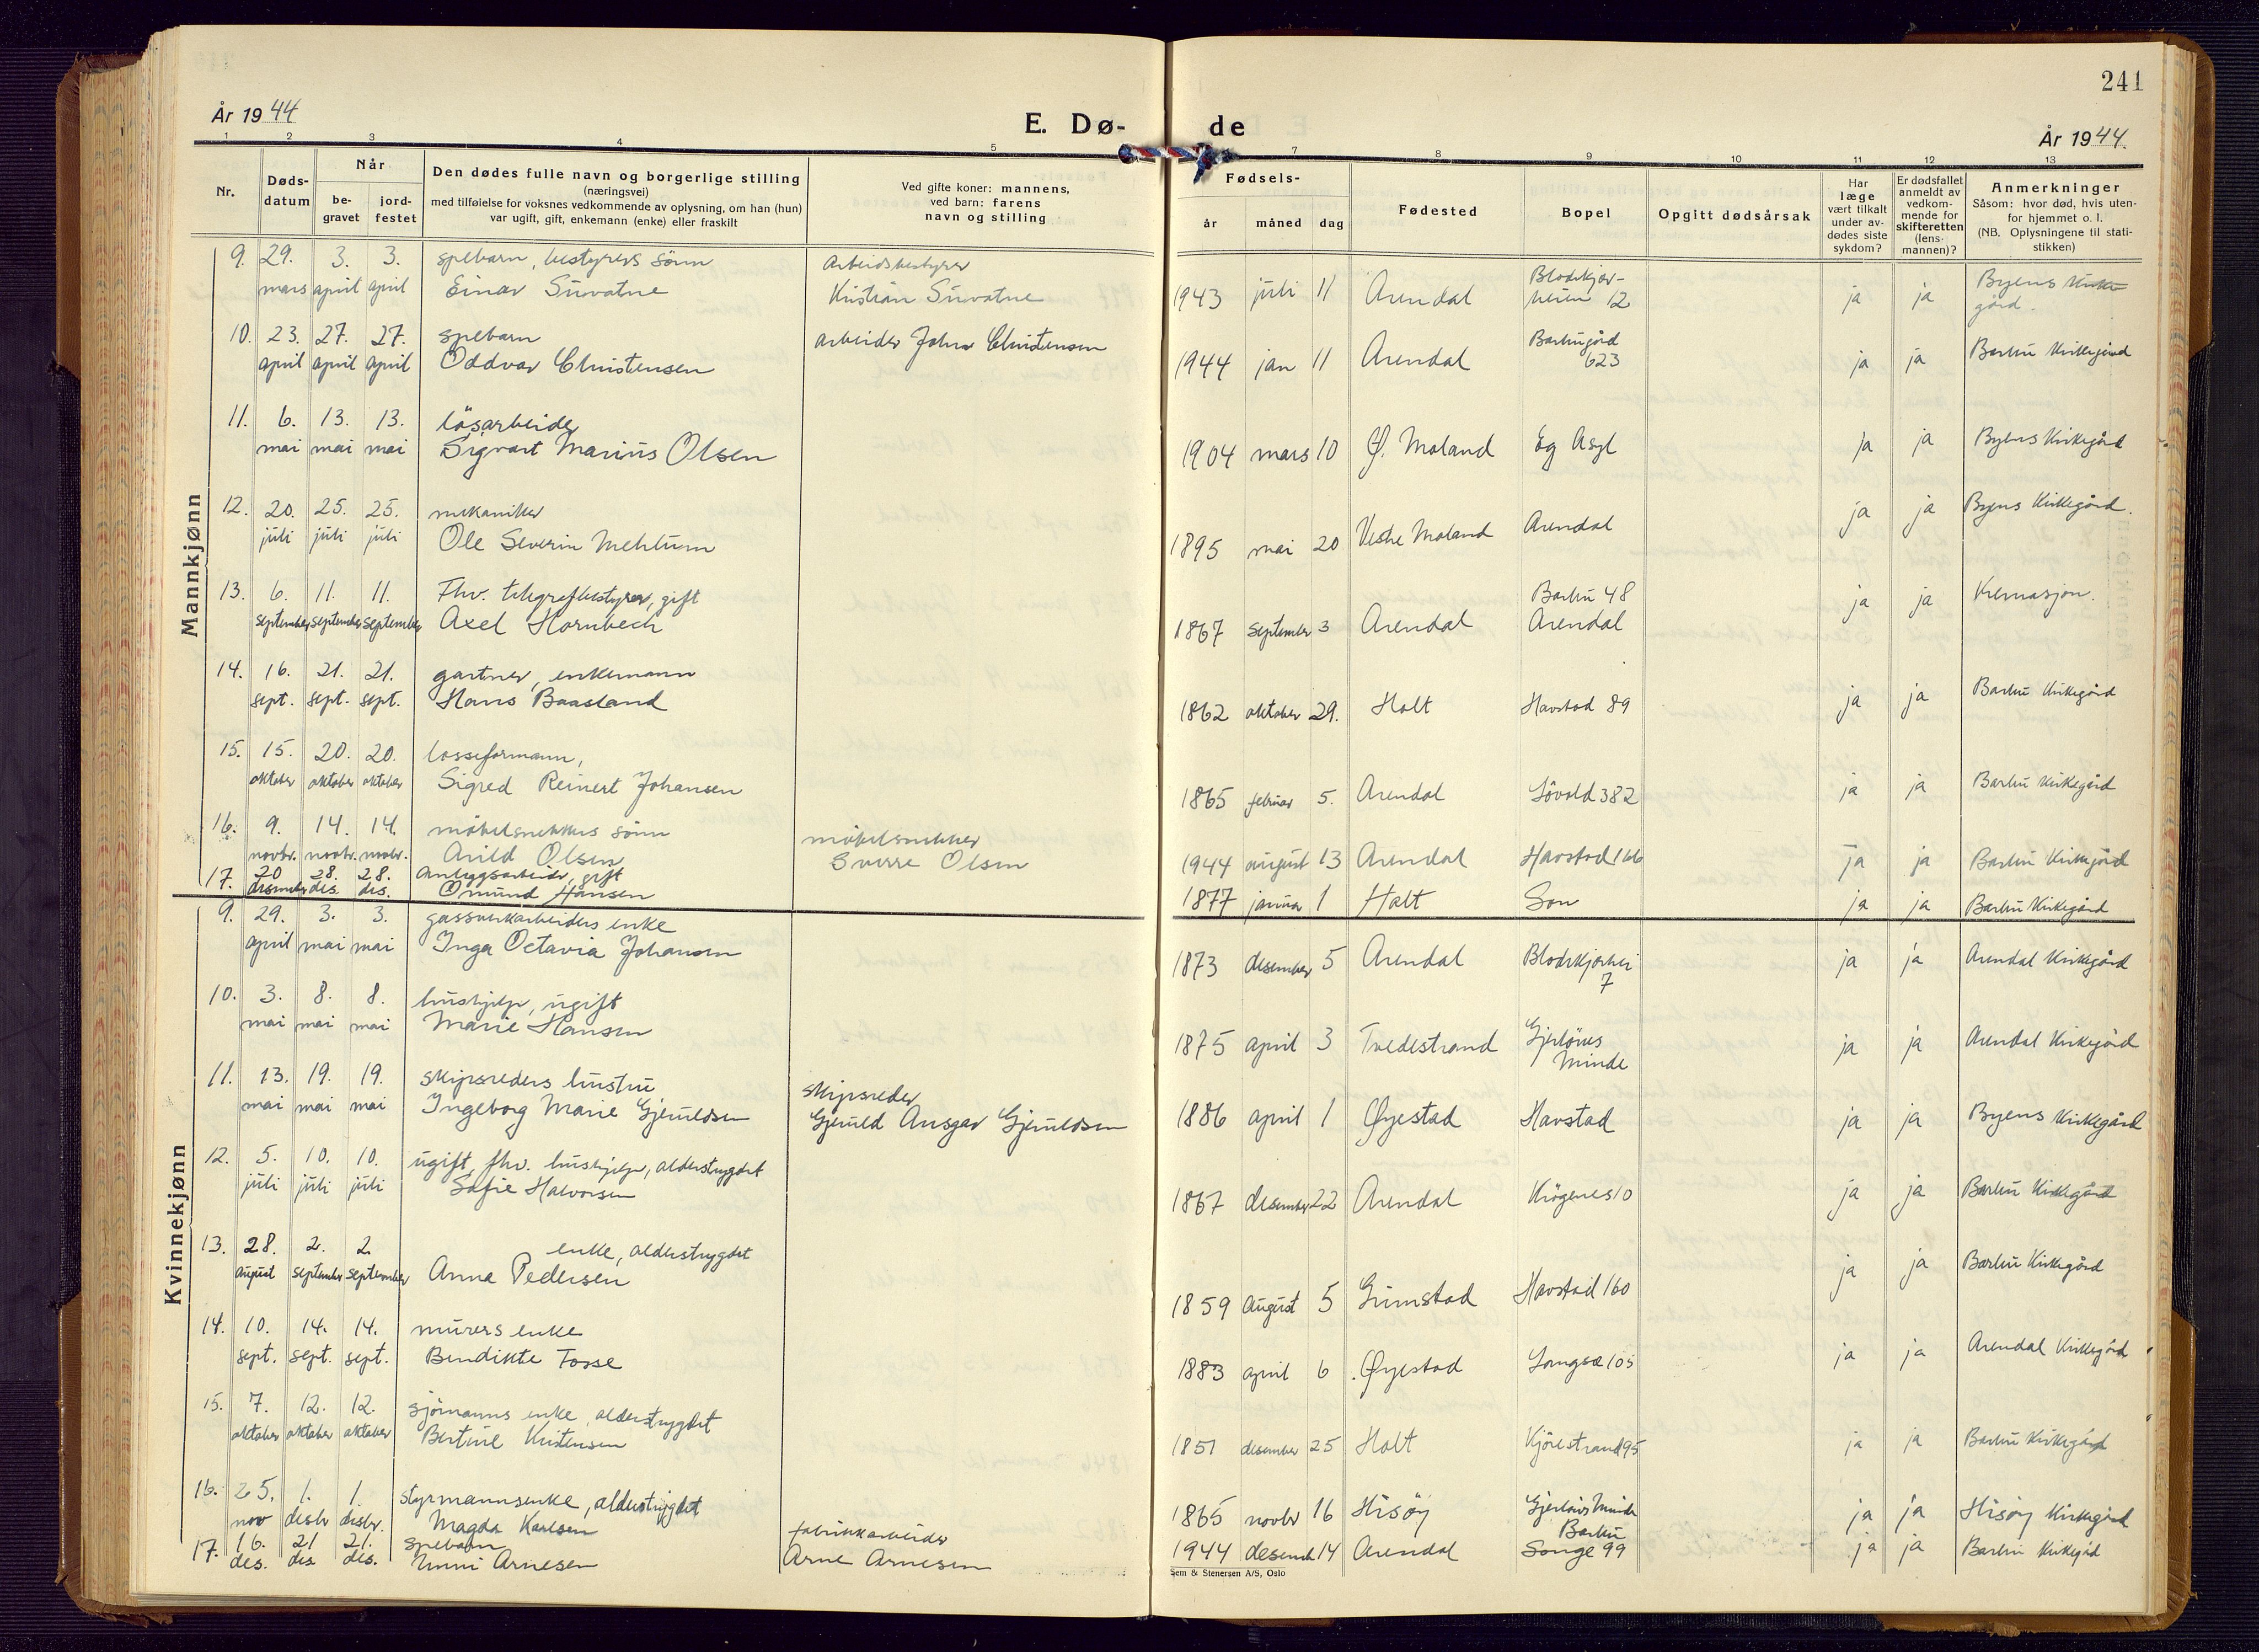 241
År 1944
E. Dø-
de
År 1944.
1 2 3 4 5 7 8 9 10 11 12 13
Nr.
Døds-
datum
Når
be-
gravet
jord-
festet
Den dødes fulle navn og borgerlige stilling
(næringsvei)
med tilføielse for voksnes vedkommende av oplysning, om han (hun)
var ugift, gift, enkemann (enke) eller fraskilt
Ved gifte koner: mannens,
ved barn: farens
navn og stilling
Fødsels-
år måned dag
Fødested
Bopel
Opgitt dødsårsak
Har
læge
vært tilkalt
under av-
dødes siste
sykdom?
Er dødsfallet
anmeldt av
vedkom-
mende for
skifteretten
(lens-
mannen)?
Anmerkninger
Såsom: hvor død, hvis uten-
for hjemmet o. l.
(NB. Oplysningene til stati-
stikken)
Mannkjønn
9. 29. 3. 3. spebarn, bestyrers sønn Arbeidsbestyrer
mars april april Einar Survatne Kristian Survatne
1943 juli 11 Arendal Blodekjær-
heien 12 ja ja Byens Kirke
gård.
10. 23. 27. 27. spebarn arbeider John Christensen
april april april Oddvar Christensen
1944 jan 11 Arendal Barbugård
623 ja ja Barbu Kirkegård
11. 6. 13. 13. løsarbeider
mai mai mai Sigvart Marius Olsen
1904 mars 10 Ø. Moland Eg Asyl ja ja Byens Kirkegård
12. 20. 25. 25. mekaniker
juli juli juli Ole Severin Mehlum
1895 mai 20 Vestre Moland Arendal ja ja Byens Kirkegård.
13. 6. 11. 11. Fhv. telegrafbestyrer, gift
september september september Axel Hornbech
1867 september 3 Arendal Barbu 48
Arendal ja ja Kremasjon.
14. 16. 21. 21. gartner, enkemann
sept. sept. sept. Hans Baasland
1862 oktober 29. Holt Havstad 89 ja ja Barbu Kirkegård
15. 15. 20. 20. losseformann,
oktober oktober oktober Sigred Reinert Johansen
1865 februar 5. Arendal Løvold 382 ja ja Barbu Kirkegård
16. 9. 14. 14. møbelsnekkers sønn møbelsnekker
novbr. novbr. novbr. Arild Olsen Sverre Olsen
1944 august 13 Arendal Havstad 166 ja ja Barbu Kirkegård
17. 20 28. 28. Anleggsarbeider, gift
desember des. des. Omund Hansen
1877 januar 1 Holt Son ja ja Barbu Kirkegård
Kvinnekjønn
9. 29. 3. 3. gassverkarbeiders enke
april mai mai Inga Octavia Johansen
1873 desember 5 Arendal Blodekjærhei
7 ja ja Arendal Kirkegård
10. 3. 8. 8. hushjelp, ugift
mai mai mai Marie Hansen
1875 april 3 Tvedestrand Gjerløws
Minde ja ja Arendal Kirkegård
11. 13. 19. 19. skipsreders hustru skipsreder
mai mai mai Ingeborg Marie Gjeruldsen Gjeruld Ansgar Gjeruldsen
1886 april 1 Øyestad Havstad ja ja Byens Kirkegård
12. 5. 10. 10. ugift, fhv. hushjelp, alderstrygdet
juli juli juli Sofie Halvorsen
1867 desember 22 Arendal Krøgenes 10 ja ja Barbu Kirkegård
13. 28. 2. 2. enke, alderstrygdet
august september september Anna Pedersen
1859 august 5 Grimstad Havstad 160 ja ja Barbu Kirkegård
14. 10. 14. 14. murers enke
sept. sept. sept. Bendikte Fosse
1883 april 6 Øyestad Langsæ 105 ja ja Arendal Kirkegård
15. 7. 12. 12. sjømanns enke, alderstrygdet
oktober oktober oktober Bertine Kristensen
1851 desember 25 Holt Kjørestrand 95 ja ja Barbu Kirkegård
16. 25. 1. 1. styrmannsenke, alderstrygdet
nov desbr desbr. Magda Karlsen
1865 novbr 16 Hisøy Gjerløws Minde
Barbu ja ja Hisøy Kirkegård
17. 16. 21 21. spebarn fabrikkarbeider
des. des des. Unni Arnesen Arne Arnesen
1944 desemb 14 Arendal Songe 99 ja ja Barbu Kirkegård
Sem & Stenersen A/S, Oslo